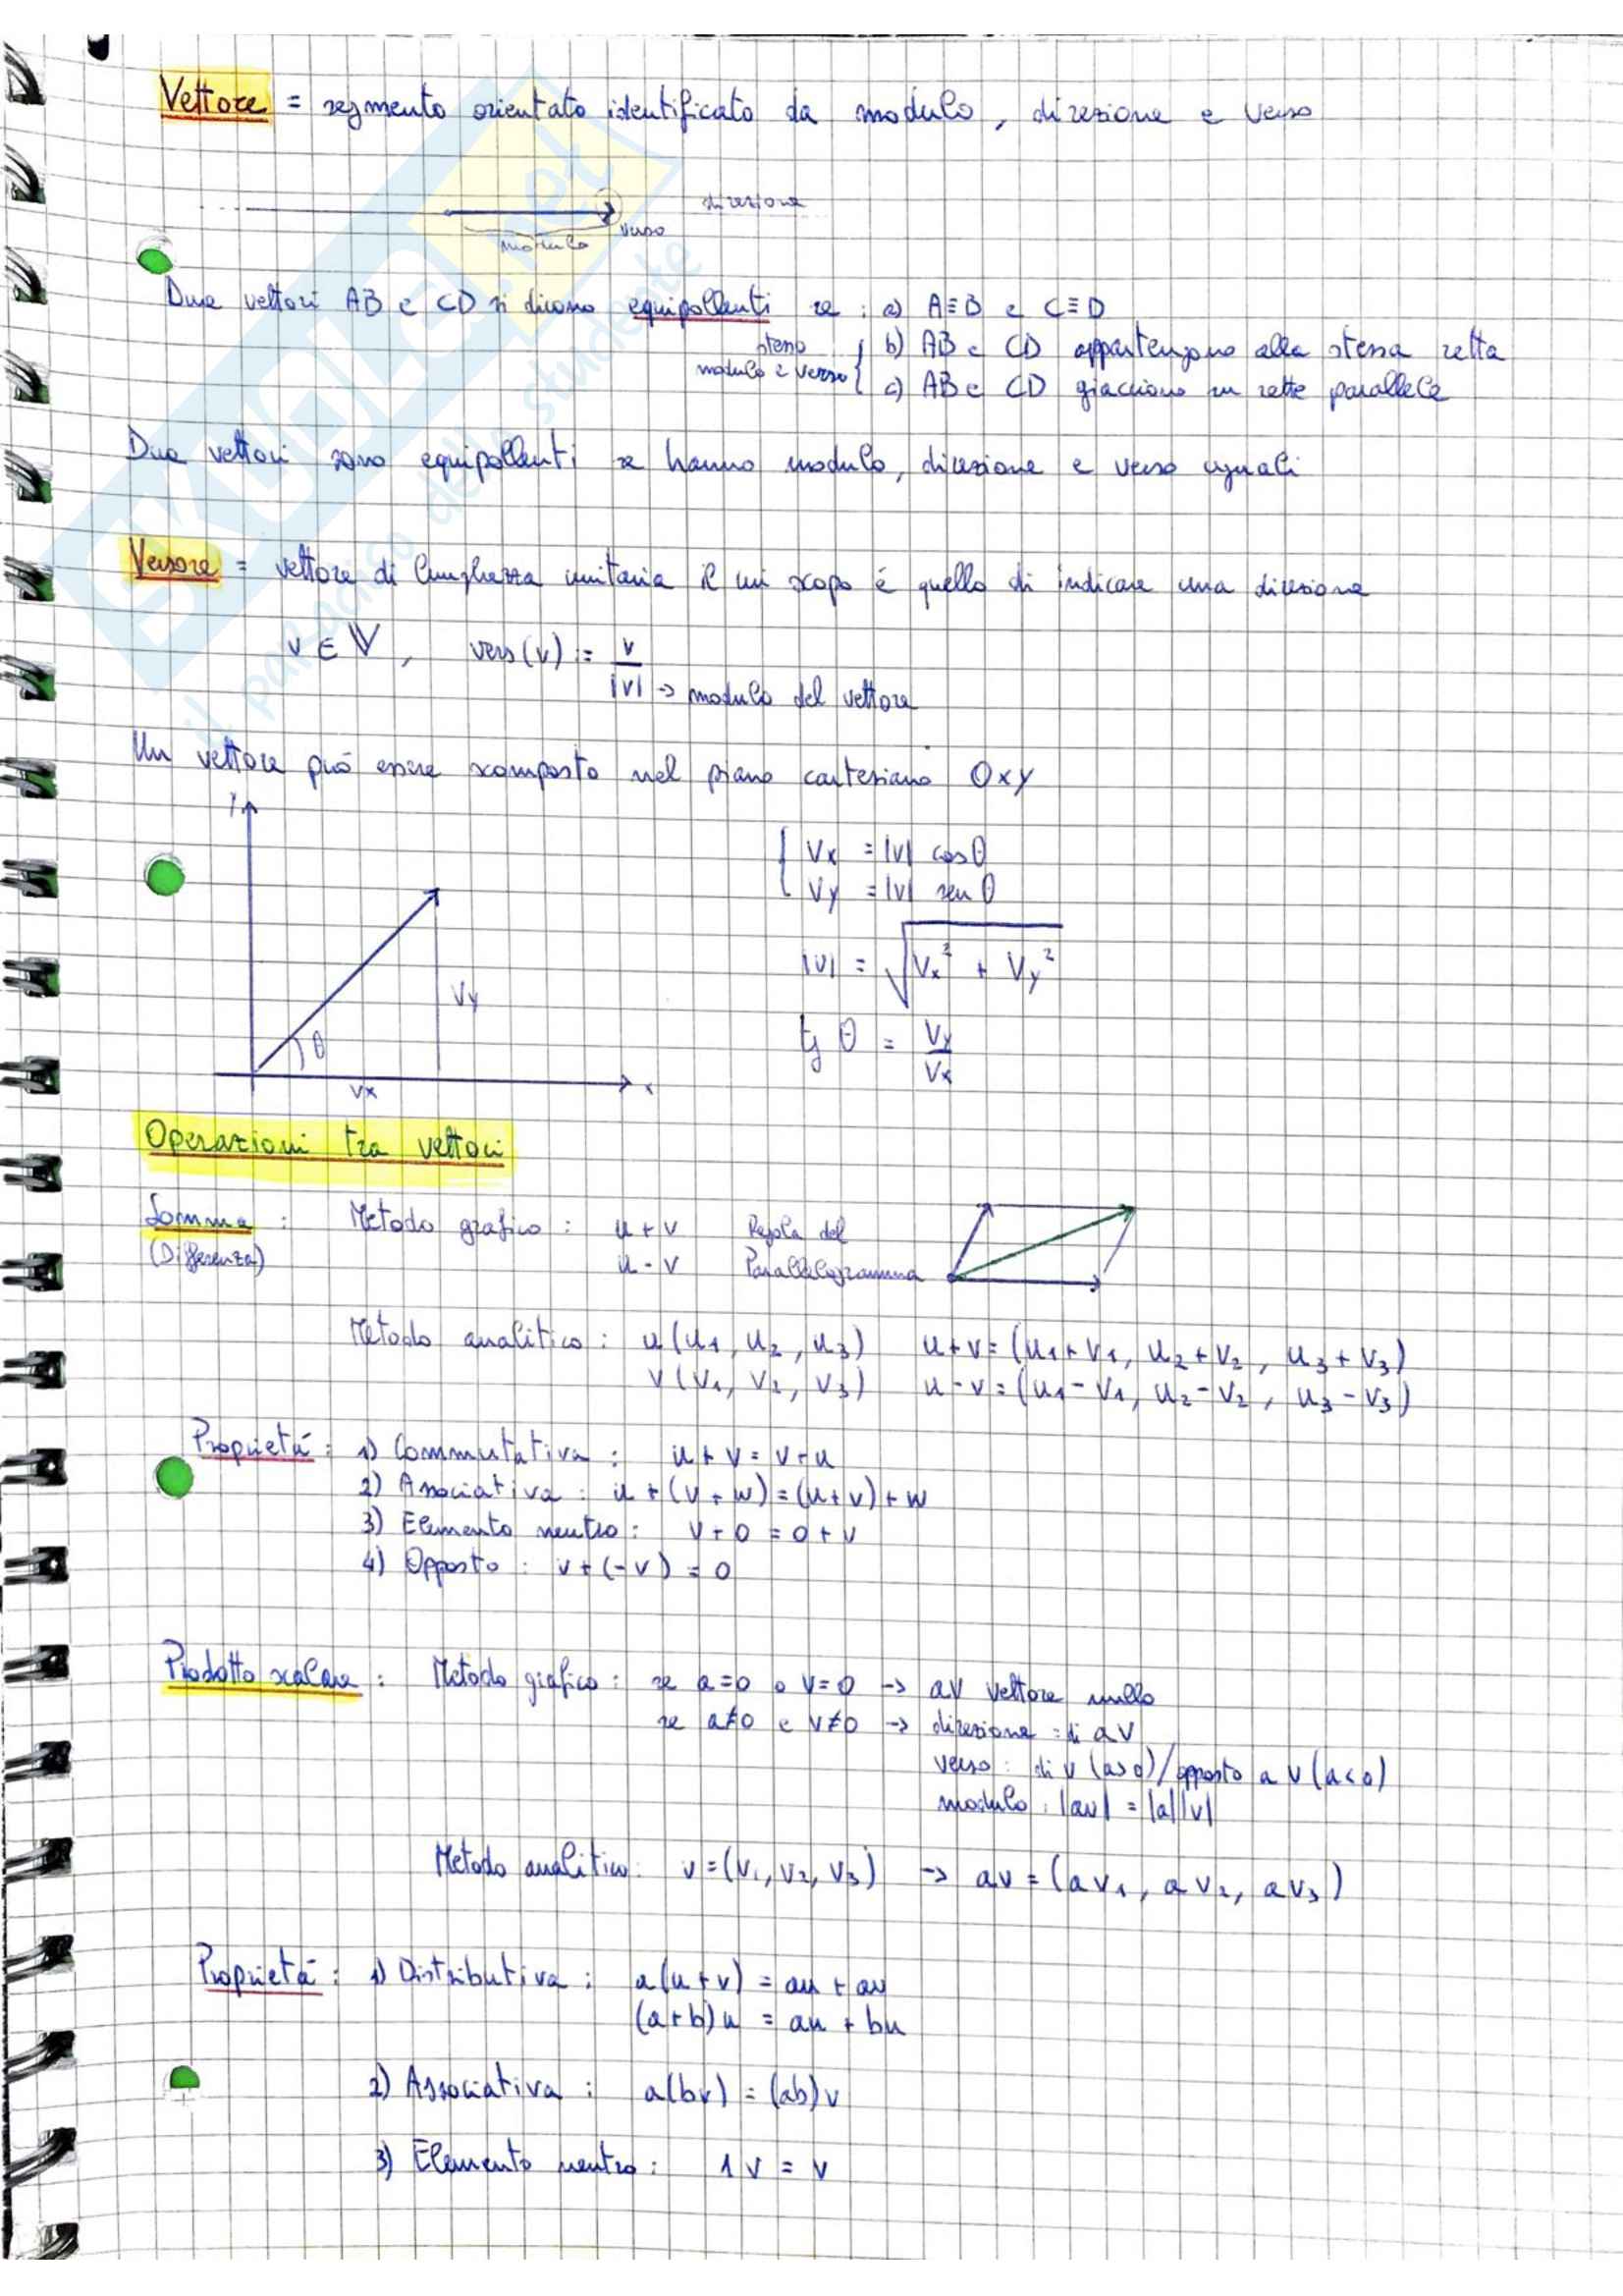 Vettore = segmento orientato identificato da modulo, direzione e verso
direzione
modulo verso
Due vettori AB e CD si dicono equipollenti se : a) A≡B e C≡D
stesso modulo e verso { b) AB e CD appartengono alla stessa retta
c) AB e CD giacciono su rette parallele
Due vettori sono equipollenti se hanno modulo, direzione e verso uguali
Versore = vettore di lunghezza unitaria il cui scopo é quello di indicare una direzione
v ∈ V, vers(v) := v/|v| -> modulo del vettore
Un vettore può essere scomposto nel piano cartesiano Oxy
y
Vx = |v| cosθ
Vy = |v| senθ
|v| = √(Vx² + Vy²)
Vy
tg θ = Vy/Vx
θ
Vx
x
Operazioni tra vettori
Somma : Metodo grafico : u+v Regola del
(Differenza) u-v Parallelogramma
Metodo analitico : u(u1, u2, u3) u+v=(u1+v1, u2+v2, u3+v3)
v(v1, v2, v3) u-v=(u1-v1, u2-v2, u3-v3)
Proprietá : 1) Commutativa : u+v=v+u
2) Associativa : u+(v+w)=(u+v)+w
3) Elemento neutro : v+0=0+v
4) Opposto : v+(-v)=0
Prodotto scalare : Metodo grafico : se a=0 o v=0 -> av vettore nullo
se a≠0 e v≠0 -> direzione : di av
verso : di v (a>0)/opposto a v (a<0)
modulo : |av| = |a||v|
Metodo analitico : v=(v1, v2, v3) -> av=(av1, av2, av3)
Proprietá : 1) Distributiva : a(u+v) = au + av
(a+b)u = au + bu
2) Associativa : a(bv) = (ab)v
3) Elemento neutro : 1v = v
SKUOLA.net
il paradiso dello studente